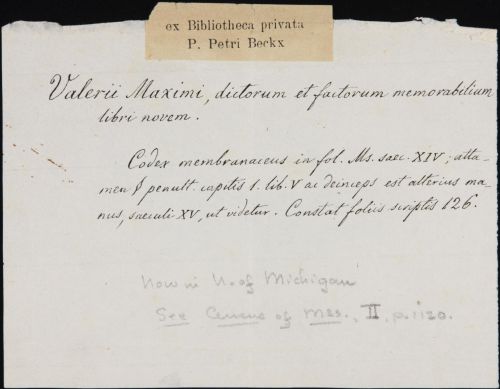 ex Bibliotheca privata
P. Petri Beckx
Valerii Maximi, dictorum et factorum memorabilium
libri novem.
Codex membranaceus in fol. Ms. saec. XIV; atta-
men § penult. capitis 1. lib. V ac deinceps est alterius ma-
nus, saeculi XV, ut videtur. Constat foliis scriptis 126.
Now in U. of Michigan
See Census of Mss., II, p. 1120.